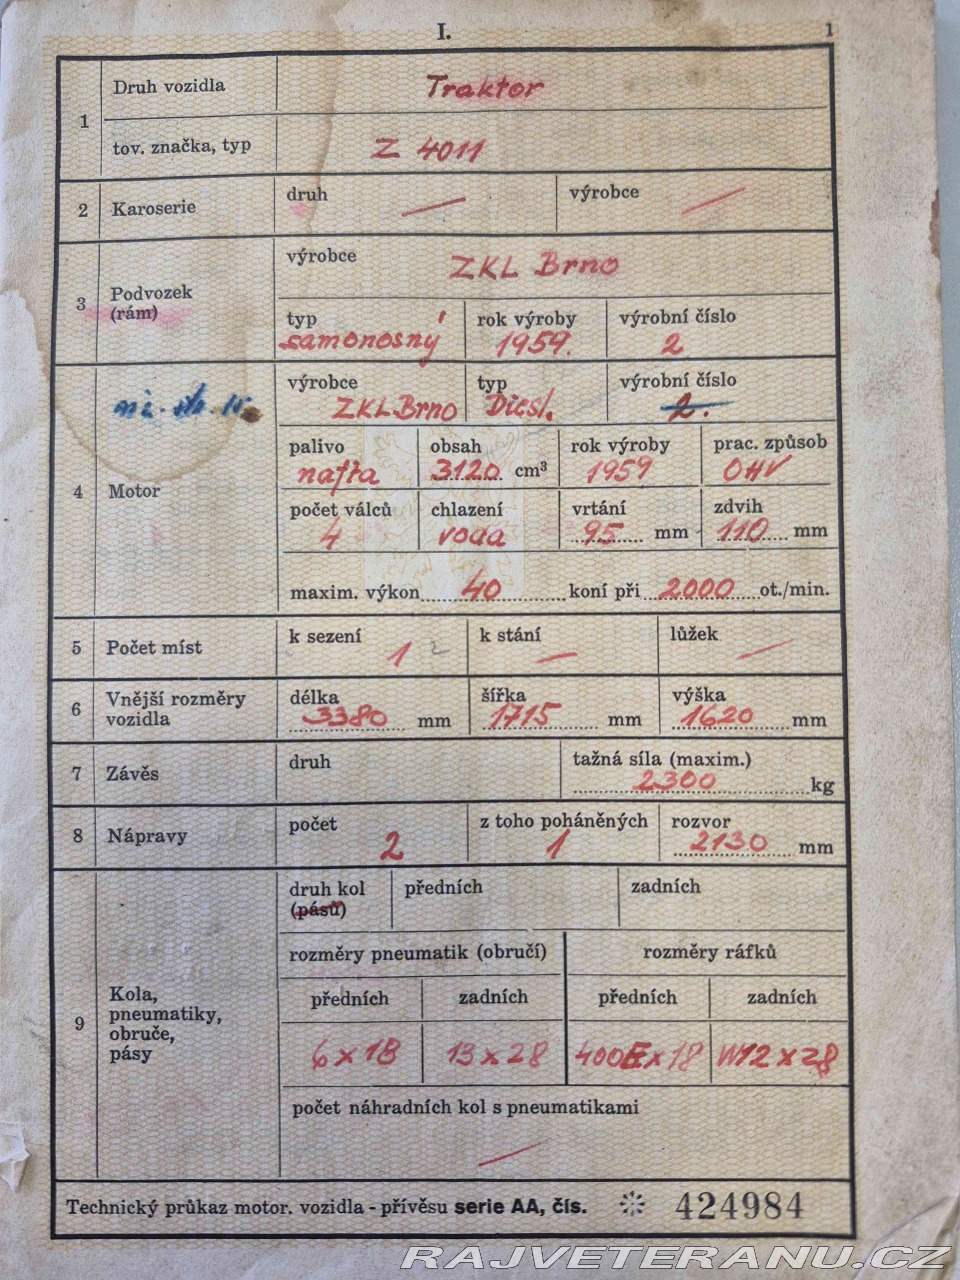 I.
1
1
Druh vozidla
Traktor
tov. značka, typ
Z 4011
2
Karoserie
druh
výrobce
3
Podvozek
(rám)
výrobce
ZKL Brno
typ
samonosný
rok výroby
1959.
výrobní číslo
2
4
Motor
výrobce
ZKL Brno
typ
Diesl.
výrobní číslo
2.
palivo
nafta
obsah
3120 cm³
rok výroby
1959
prac. způsob
OHV
počet válců
4
chlazení
voda
vrtání
95 mm
zdvih
110 mm
maxim. výkon 40 koní při 2000 ot./min.
5
Počet míst
k sezení
1 2
k stání
lůžek
6
Vnější rozměry
vozidla
délka
3380 mm
šířka
1715 mm
výška
1620 mm
7
Závěs
druh
tažná síla (maxim.)
2300 kg
8
Nápravy
počet
2
z toho poháněných
1
rozvor
2130 mm
9
Kola,
pneumatiky,
obruče,
pásy
druh kol
(pásů)
předních
zadních
rozměry pneumatik (obručí)
rozměry ráfků
předních
zadních
předních
zadních
6 x 18
13 x 28
400E x 18
W12 x 28
počet náhradních kol s pneumatikami
Technický průkaz motor. vozidla - přívěsu serie AA, čís. 424984
RAJVETERANU.CZ